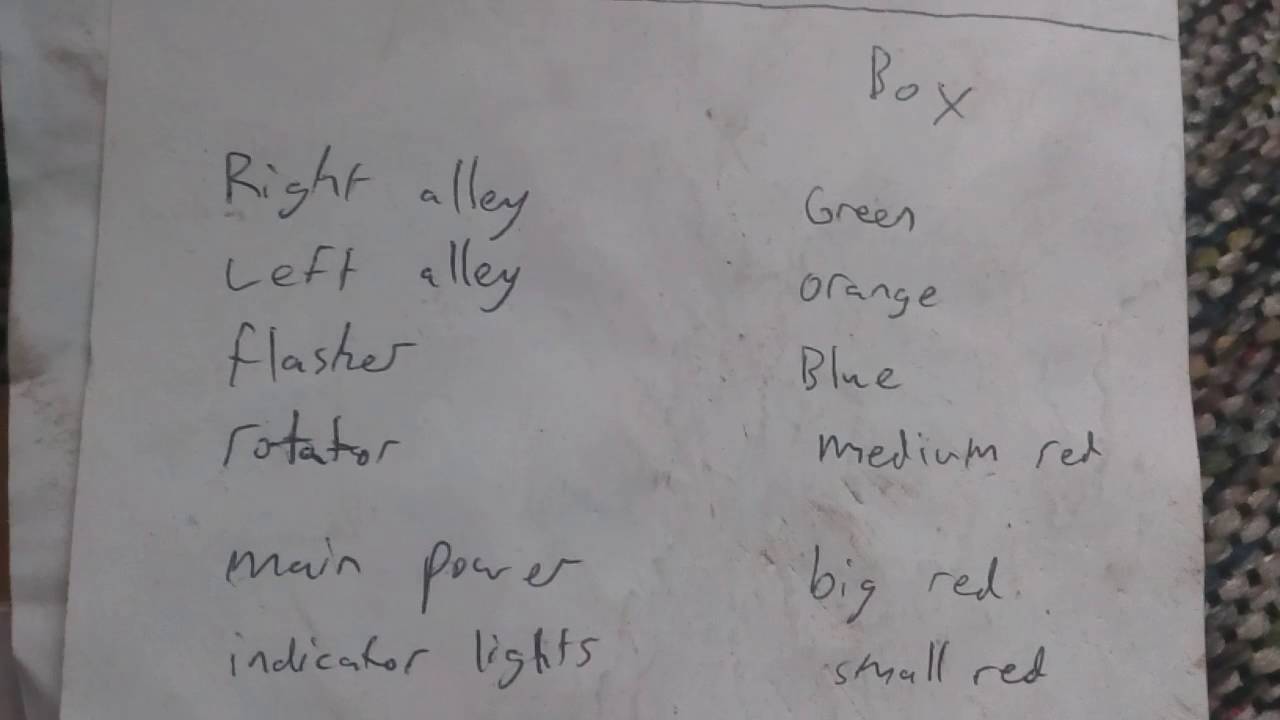 Box
Right alley Green
Left alley orange
flasher Blue
rotator medium red
main power big red
indicator lights small red